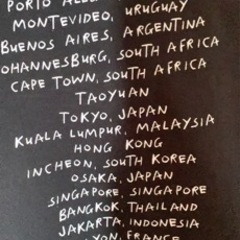 PORTO
MONTEVIDEO, URUGUAY
BUENOS AIRES, ARGENTINA
OHANNESBURG, SOUTH AFRICA
CAPE TOWN, SOUTH AFRICA
TAOYUAN
TOKYO, JAPAN
KUALA LUMPUR, MALAYSIA
HONG KONG
INCHEON, SOUTH KOREA
OSAKA, JAPAN
SINGAPORE, SINGAPORE
BANGKOK, THAILAND
JAKARTA, INDONESIA
YON, FRANCE